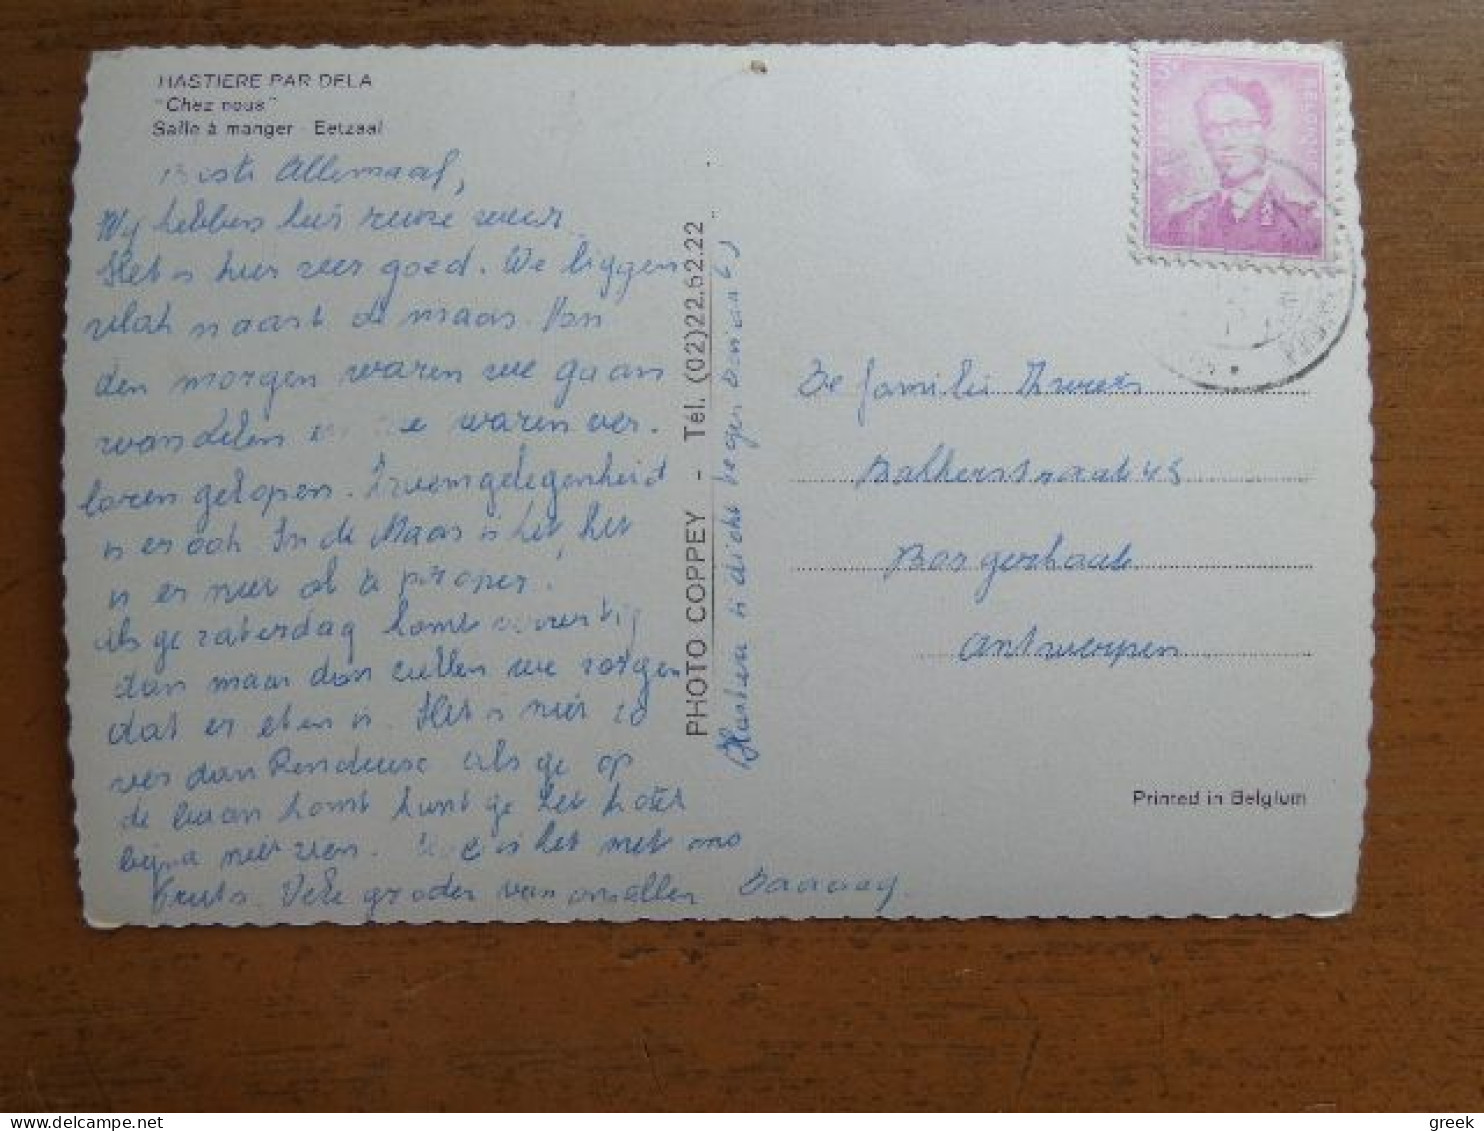 HASTIERE PAR DELA
"Chez nous"
Salle à manger - Eetzaal
Beste Allemaal,
Wij hebben hier reuze weer.
Het is hier zeer goed. We liggen
vlak naast de maas. Van
den morgen waren we gaan
wandelen we waren ver.
loren gelopen. Zwemgelegenheid
is er ook. In de Maas is het, het
is er niet al te proper.
Als ge zaterdag komt
dan maar dan zullen we zorgen
dat er eten is. Het is niet zo
ver dan Rendeuse als ge op
de baan komt kunt ge het hotel
bijna niet zien. Hoe is het met ons
Kruts. Vele groeten van onsallen Daaaag.
PHOTO COPPEY - Tél. (02)22.62.22
Hastiere is dicht tegen Dinant)
BELGIQUE
De familie
Bakkerstraat 45
Borgerhout
Antwerpen
Printed in Belgium
greek